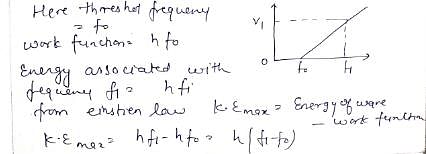 Here threshol frequency
= fo
work function = hfo
Energy associated with
frequency f1 = hf1
from einstien law K.E max = Energy of wave
- work function
K.E max = hf1 - hfo = h(f1-fo)
V1
0
fo
f1